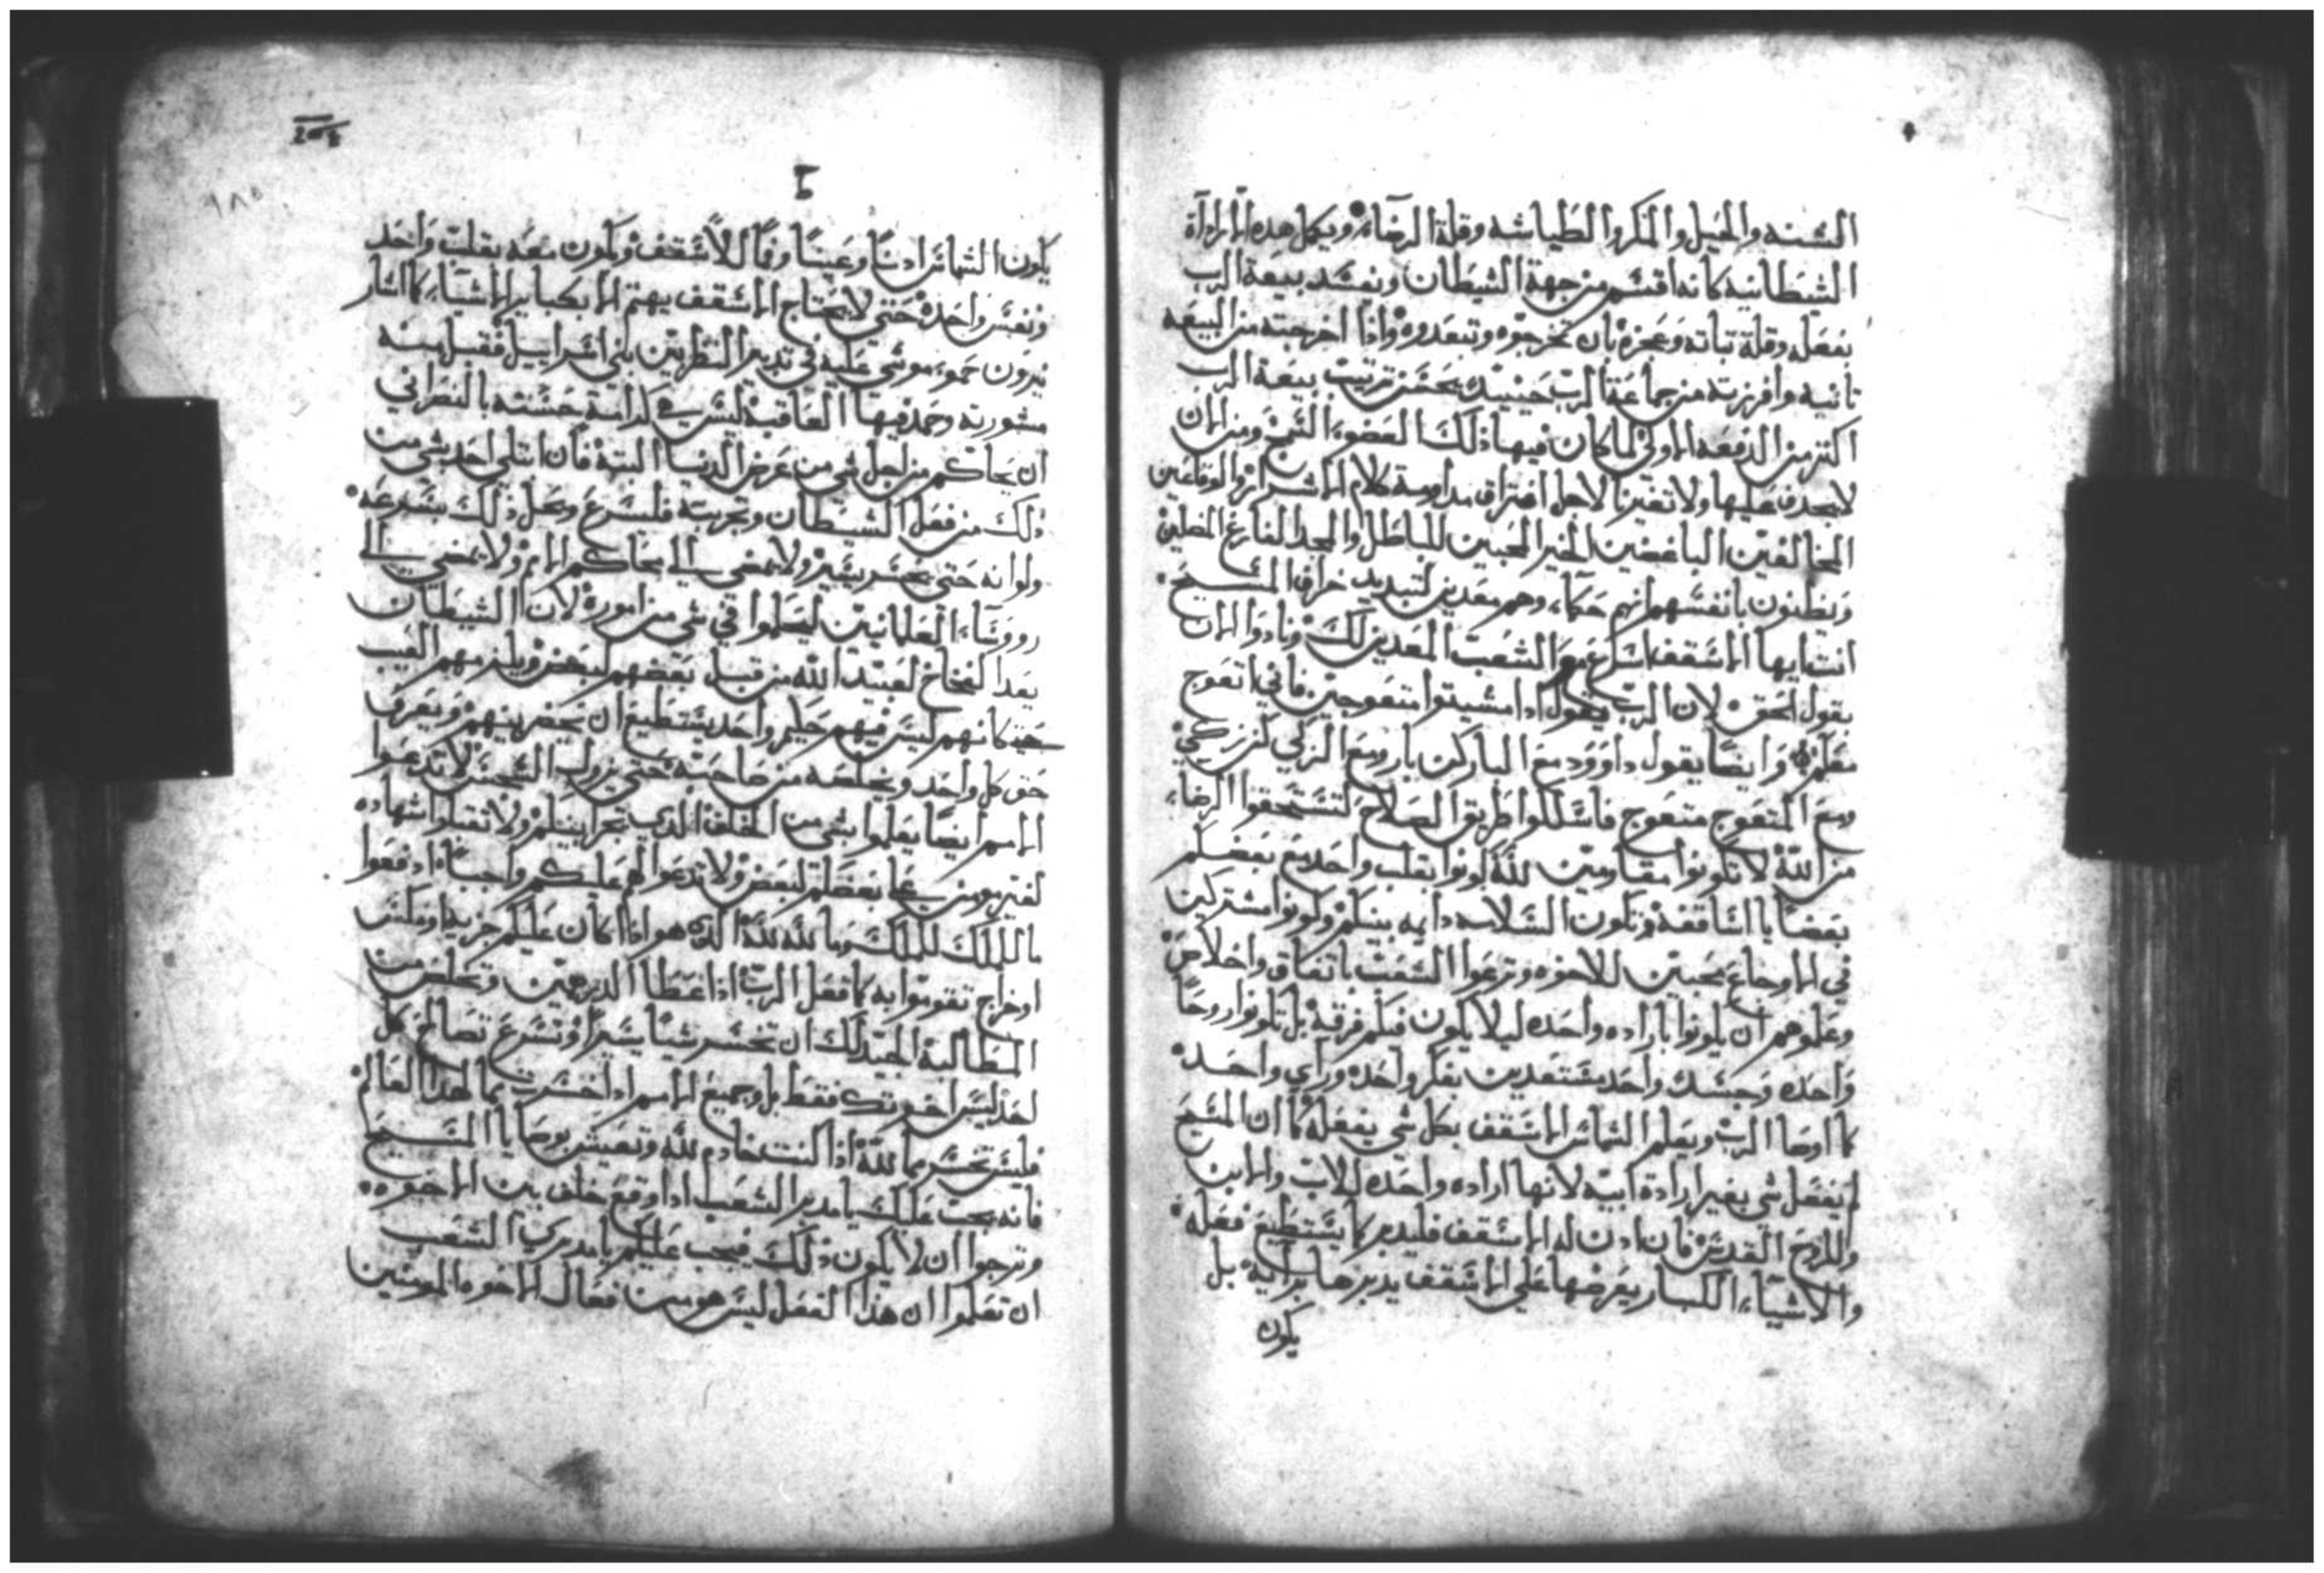 السنه والحيل والمكر والطياشه وقلة الرضاء ويكمل هده الاراداة
الشيطانيه كانه اقتسم من جهة الشيطان ونفسد بيعة الرب
بفعله وقلة تباته وعجزه بان تخرجوه وتبعدوه وادا اخرجته من البيعه
تانيه وافرزته من جماعة الرب حينيد يحسن ترتيب بيعة الرب
اكتر من الدفعه الاولى لما كان فيها ذلك العضو ومن الان
لا يجدف عليها ولا تعير لاجل افتراق مداومة كلام الاشرار والوقاعين
المخالفين الباغضين الخير المحبين للباطل والمجد الفارغ
ويظنون بانفسهم انهم حكماء وهم معدين لتبديد خراف المسيح
انت ايها الاسقف اسرع مع الشعب المعدين لك ونادوا الان
بقول الحق لان الرب يقول ادا مشيتوا متعوجين فاني اتعوج
معكم وايضا يقول داوود مع البار كن بار ومع الزكي كن زكي
ومع المتعوج متعوج فاسلكوا طريق الصلاح لتستحقوا الرضاء
من الله لا تكونوا مقاومين لله كونوا بقلب واحد مع بعضكم
بعضا يا اساقفه وتكون السلامه دايمه بينكم وكونوا مشتركين
في الاوجاع محبين للاخوه وترعوا الشعب باتفاق واخلاص
وعلموهم ان يكونوا باراده واحده ليلا يكون فيكم فرقة بل تكونوا روحا
واحده وجسد واحد مستعدين بفكر واحد وراي واحد
كما اوصا الرب ويعلم الشماس الاسقف بكل شي يفعله كما ان المسيح
لم يفعل شي بغير ارادة ابيه لانها اراده واحده للاب والابن
والروح القدس فان ادن له الاسقف فليدبر كما يستطيع فعله
والاشياء الكبار يعرضها على الاسقف يدبرها برايه بل
يكون
يكون الشماس ادنا وعينا وفما للاسقف ويكون معه بقلب واحد
ونفس واحده حتى لا يحتاج الاسقف يهتم الا بكباير الاشياء كما اشار
يترون حمو موسى عليه في تدبير النظر بين بني اسراييل فقبل منه
مشورته وحمد فيها العاقبة ليس هي كرامة حسنه بالنصراني
ان يحاكم من اجل شي من عرض الدنيا البتة فان ابتلي احد بشي من
ذلك من فعل الشيطان وتجربته فليسرع وحل ذلك بسرعه
ولو انه حتى يخسر يسير ولا يمضي الى محاكم الامم ولا يمضي الى
رووساء العلمانيين ليتكلموا في شي من اموره لان الشيطان
يعد الفخاخ لعبيد الله من قبل بعضهم لبعض ويلزمهم العيب
حين كانهم ليس فيهم حكيم واحد يستطيع ان يحضر بينهم ويعرف
حق كل واحد ويخلصه من صاحبه حتى يزول السجس لا تدعوا
الامم ايضا يعلموا بشي من الخلف الذي تجرا بينكم ولا تقبلوا شهاده
لغير مومن على بعضكم لبعض ولا تدعوا لهم عليكم واجبا ادفعوا
ما للملك للملك وما لله لله الذي هو اذا كان عليكم جزيه او مكس
او خراج تقوموا به كما فعل الرب اذ اعطا الدرهمين وتخلص من
المطالبة الجيد لك ان تخسر شيا يسيرا وتسرع تصالح كل
احد ليس اخوتك فقط بل وجميع الامم اذا خسرت مما لهذا العالم
فليس تخسر مما لله اذا كنت خادم لله وتعيش بوصايا المسيح
فانه يجب عليك يا مدبر الشعب اذا وقع خلف بين الاخوه
وترجوا ان لا يكون ذلك فيجب عليكم يا مدبري الشعب
ان تعلموا ان هذا الفعل ليس هو من فعال الاخوه المومنين